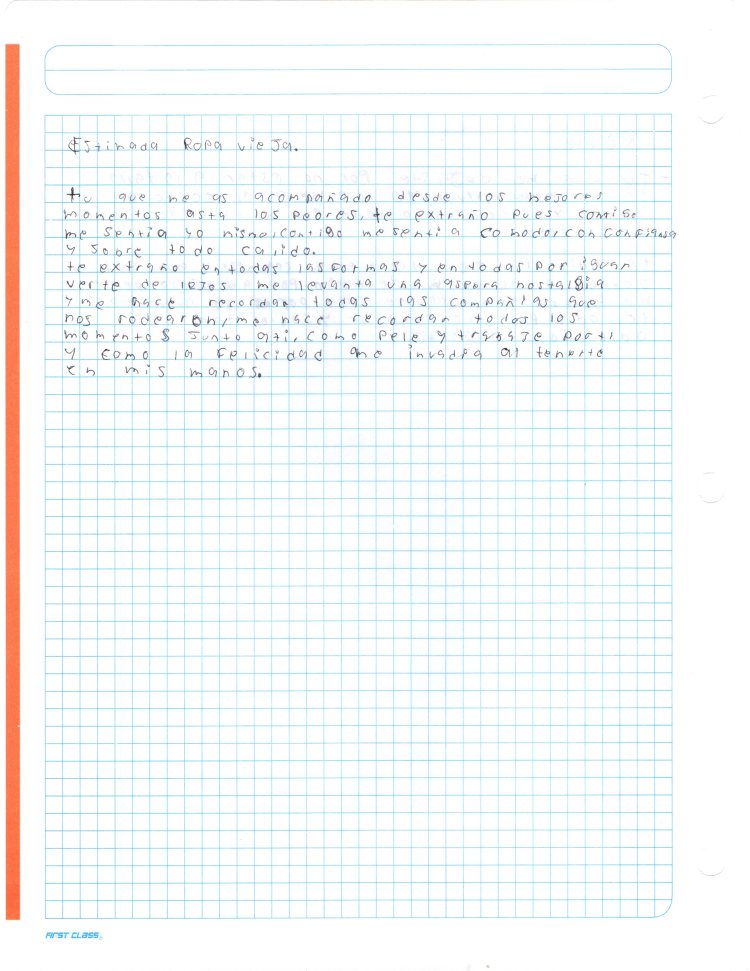 Estimada Ropa vieja.
tu que me as acompañado desde los mejores
momentos asta los peores, te extraño pues contigo
me sentia yo misma, contigo me sentia comodo, con confianza
y sobre todo calido.
te extraño en todas las formas y en todas por igual
verte de lejos me levanta una aspera nostalgia
y me hace recordar todas las compañias que
nos rodearon, me hace recordar todos los
momentos junto a ti, como pele y trabaje por ti
y como la felicidad me invadia al tenerte
en mis manos.
FIRST CLASS